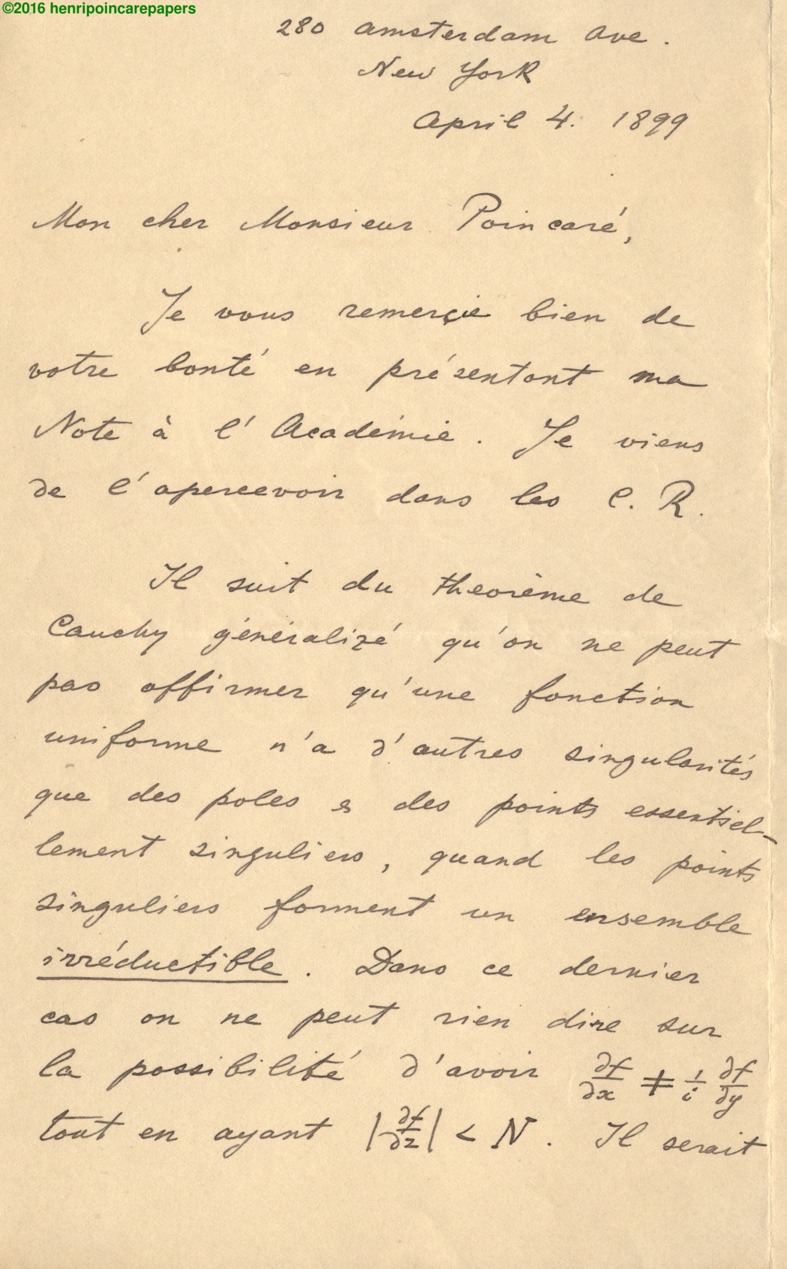 ©2016 henripoincarepapers
280 Amsterdam Ave.
New York
April 4. 1899
Mon cher Monsieur Poincaré,
Je vous remerçie bien de
votre bonté en présentant ma
Note à l'Académie. Je viens
de l'apercevoir dans les C. R.
Il suit du theorème de
Cauchy généralizé qu'on ne peut
pas affirmer qu'une fonction
uniforme n'a d'autres singularités
que des poles & des points essentiel-
lement singuliers, quand les points
singuliers forment un ensemble
irréductible. Dans ce dernier
cas on ne peut rien dire sur
la possibilité d'avoir ∂f/∂x ≠ 1/i ∂f/∂y
tout en ayant |∂f/∂z| < N. Il serait